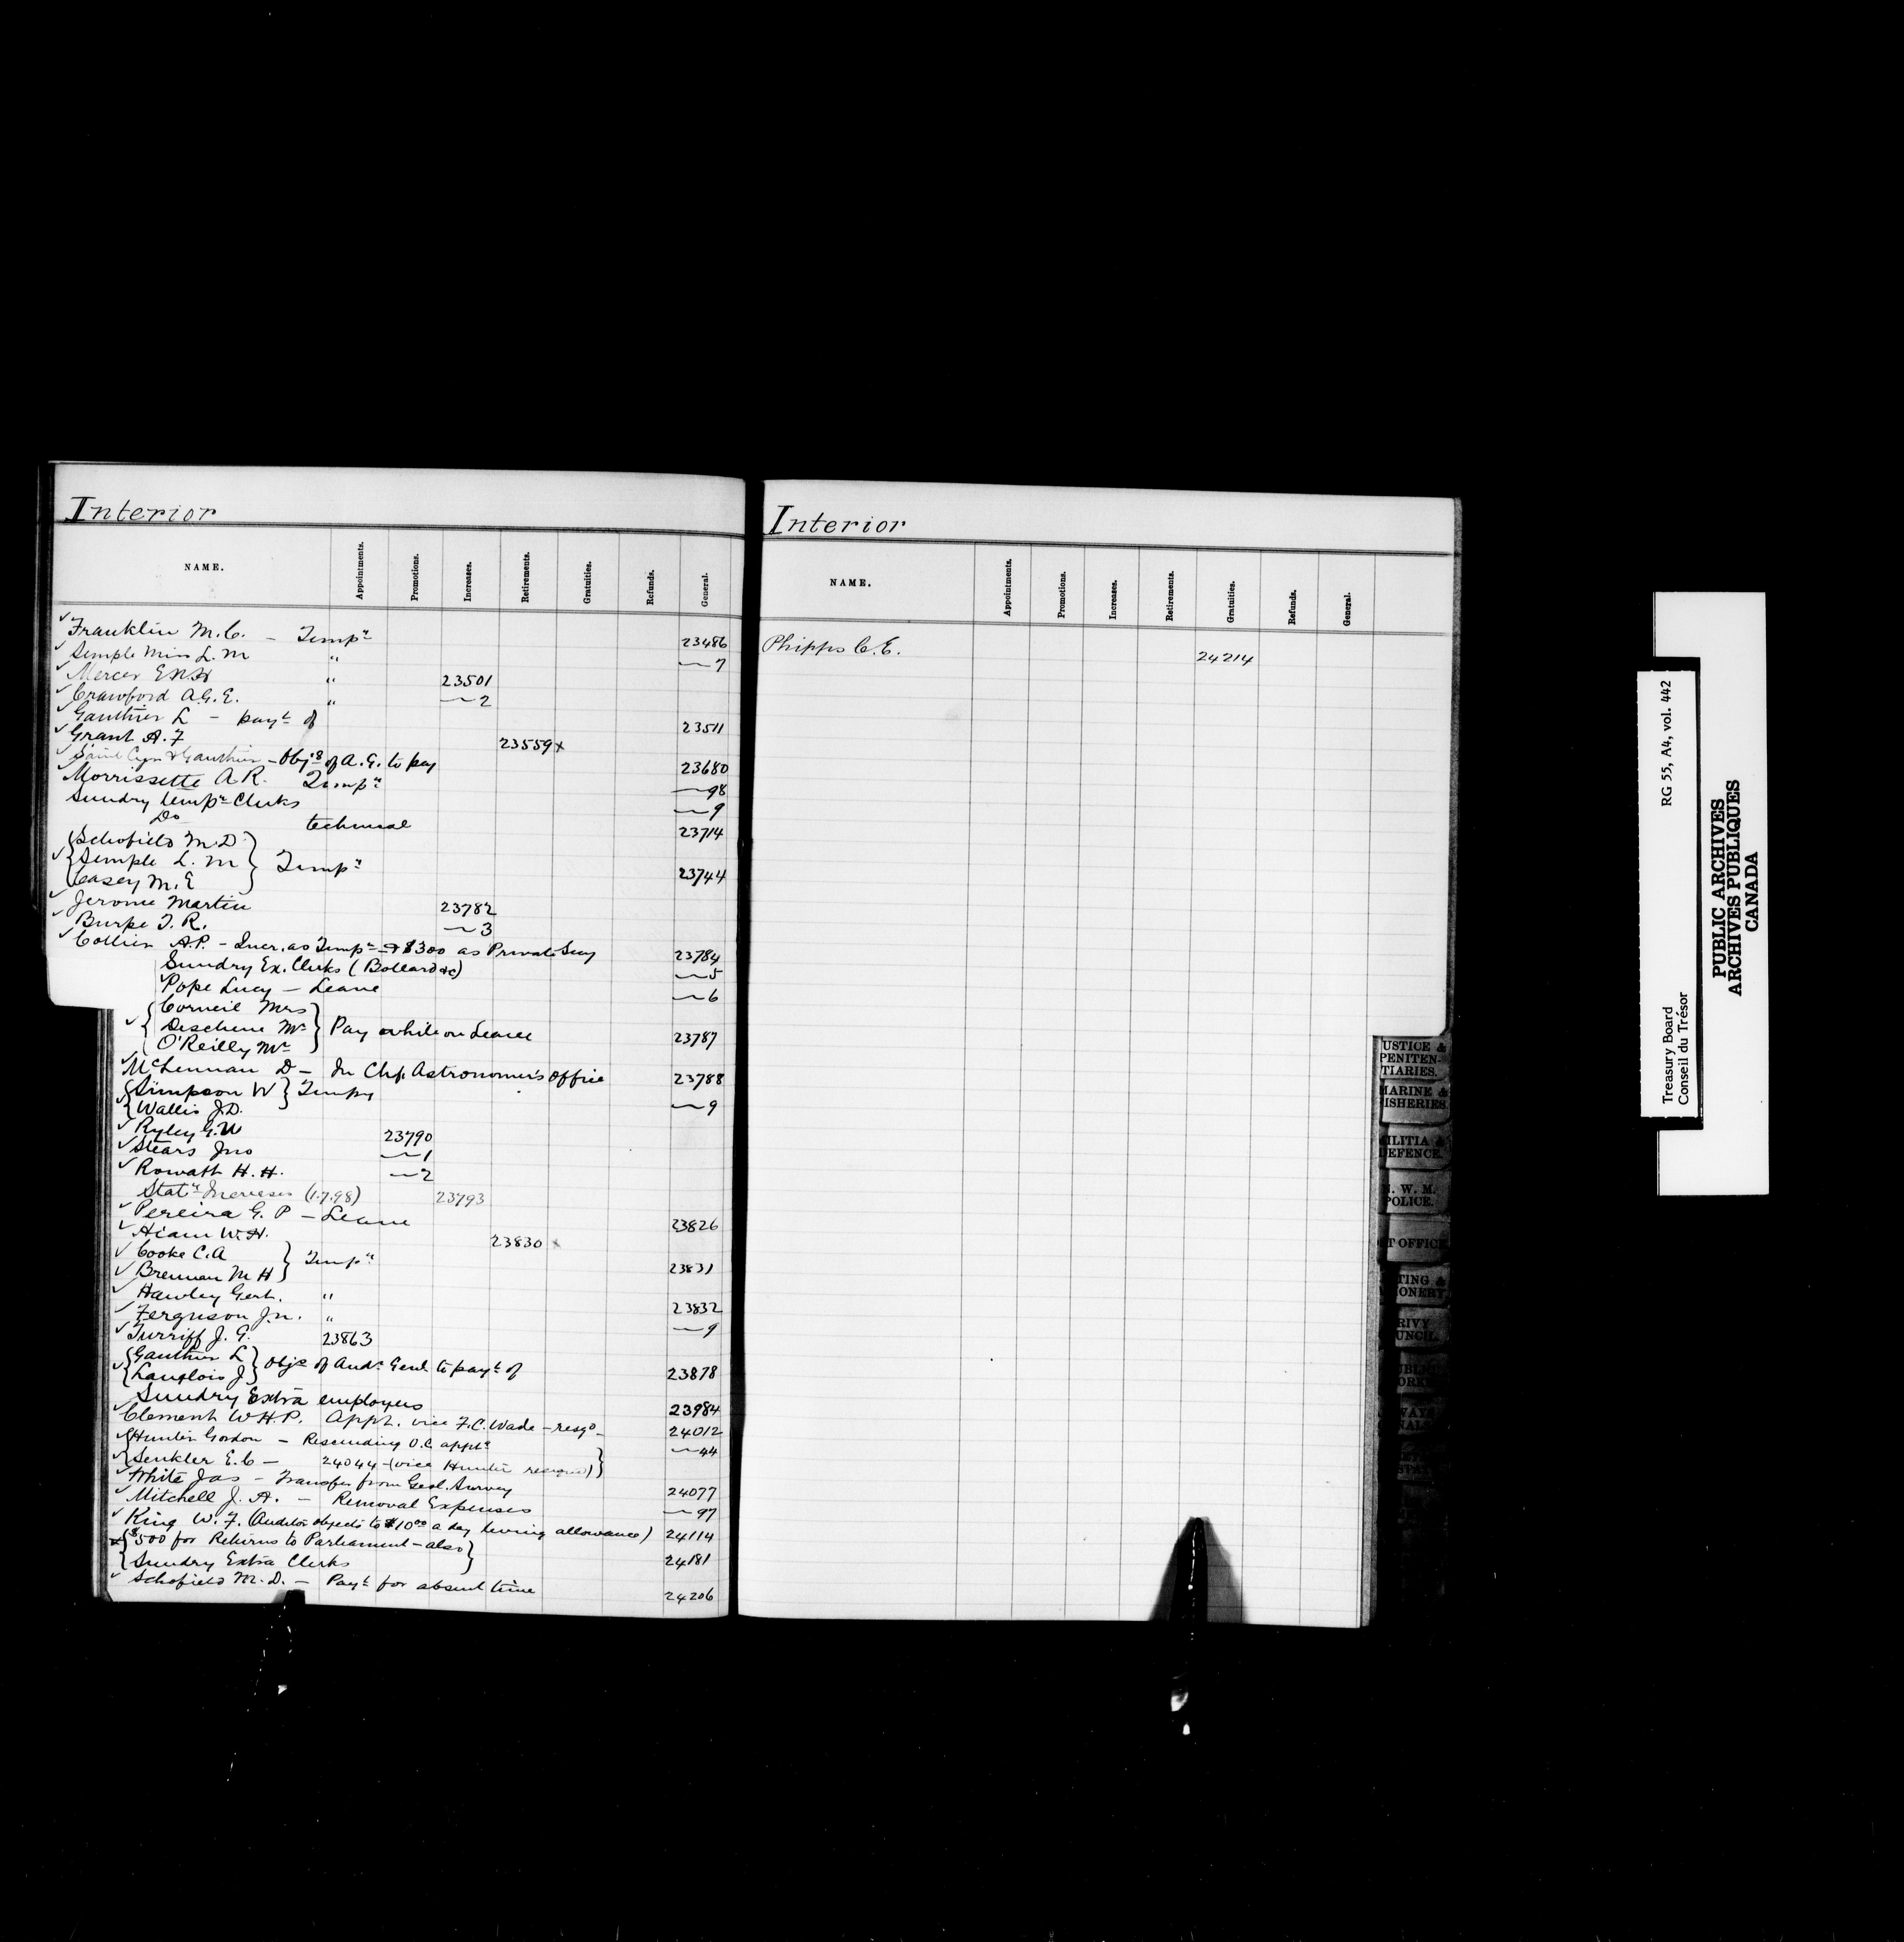 Interior
NAME. Appointments. Promotions. Increases. Retirements. Gratuities. Refunds. General.
✓ Franklin M.C. – Tempy 23486
✓ Semple Miss L.M " 〃 7
✓ Mercer " 23501
✓ Crawford A.G.E. " 〃 2
✓ Gauthier L – payt of 23511
✓ Grant A.F 23559 x
✓ Saint Cyr & Gauthier – Objns of A.G. to pay 23680
✓ Morrissette A.R. Tempy 〃 98
Sundry tempy Clerks 〃 9
Do technical 23714
{Schofield M.D.
✓ {Semple L.M } Tempy 23744
{Casey M.E
✓ Jerome Martin 23782
✓ Burpe T.R. 〃 3
✓ Collier A.P. – Incr. as Tempy & $300 as Private Secy 23784
Sundry Ex. Clerks (Bollard &c) 〃 5
Pope Lucy – Leave 〃 6
{Corneil Mrs
✓ {Deschene Mr } Pay while on Leave 23787
{O'Reilly Mr
✓ McLennan D – In Chf. Astronomer's Office 23788
{Simpson W } Tempy
✓ {Wallis J.D. 〃 9
✓ Ryley G.W 23790
✓ Stears Jno 〃 1
✓ Rowatt H.H. 〃 2
Staty Increases (1.7.98) 23793
✓ Pereira G.P – Leave 23826
✓ Hiam W.H. 23830 x
✓ Cooke C.A } Tempy
✓ Brennan M H 23831
✓ Hawley Gert. " 23832
✓ Ferguson J.n. " 〃 9
✓ Turriff J.G. 23863
{Gauthier L } Objn of Audr Genl to payt of
✓ {Langlois J 23878
Sundry Extra employees 23984
✓ Clement W.H.P. Appt. vice F.C. Wade – resgd 24012
✓ {Hunter Gordon – Rescinding O.C. appt 〃 44
✓ {Senkler E.C – 24044 – (vice Hunter resigned) }
✓ White Jas – Transfer from Geol. Survey 24077
✓ Mitchell J.A. – Removal Expenses 〃 97
✓ King W.F. (Auditor objects to $10.00 a day living allowance) 24114
{$500 for Returns to Parliament – also }
{Sundry Extra Clerks 24181
✓ Schofield M.D. – Payt for absent time 24206
Interior
NAME. Appointments. Promotions. Increases. Retirements. Gratuities. Refunds. General.
Phipps C.E. 24214
USTICE &
PENITEN-
TIARIES.
MARINE &
ISHERIES
ILITIA &
DEFENCE.
N. W. M.
POLICE.
T OFFICE
TING &
IONERY
RIVY
UNCIL.
RG 55, A4, vol. 442
Treasury Board
Conseil du Trésor
PUBLIC ARCHIVES
ARCHIVES PUBLIQUES
CANADA